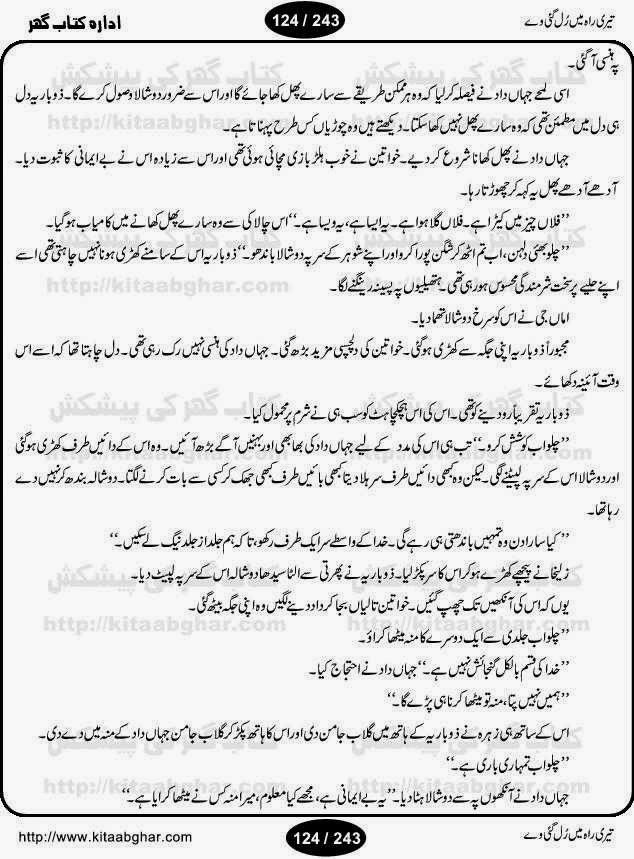 ادارہ کتاب گھر 124 / 243 تیری راہ میں رُل گئی وے
پہ ہنسی آ گئی۔
اسی لمحے جہاں داد نے فیصلہ کر لیا کہ وہ ہر ممکن طریقے سے سارے پھل کھا جائے گا اور اس سے ضرور دوشالا وصول کرے گا۔ ذوباریہ دل
ہی دل میں مطمئن تھی کہ وہ سارے پھل نہیں کھا سکتا۔ دیکھتے ہیں وہ چوڑیاں کس طرح پہناتا ہے۔
جہاں داد نے پھل کھانا شروع کر دیے۔ خواتین نے خوب ہلڑ بازی مچائی ہوئی تھی اور اس سے زیادہ اس نے بے ایمانی کا ثبوت دیا۔
آدھے آدھے پھل یہ کہہ کر چھوڑتا رہا۔
’’فلاں چیز میں کیڑا ہے۔ فلاں گلا ہوا ہے۔ یہ ایسا ہے، یہ ویسا ہے۔‘‘ اس چالاکی سے وہ سارے پھل کھانے میں کامیاب ہو گیا۔
’’چلو بھئی دلہن، اب تم اٹھ کر شگن پورا کرو اور اپنے شوہر کے سر پہ دوشالا باندھو۔‘‘ ذوباریہ اس کے سامنے کھڑی ہونا نہیں چاہتی تھی اسے
اپنے حلیے پر سخت شرمندگی محسوس ہو رہی تھی۔ ہتھیلیوں پہ پسینہ رینگنے لگا۔
اماں جی نے اس کو سرخ دوشالا تھما دیا۔
مجبوراً ذوباریہ اپنی جگہ سے کھڑی ہو گئی۔ خواتین کی دلچسپی مزید بڑھ گئی۔ جہاں داد کی ہنسی نہیں رک رہی تھی۔ دل چاہتا تھا کہ اسے اس
وقت آئینہ دکھائے۔
ذوباریہ تقریباً رو دینے کو تھی۔ اس کی اس ہچکچاہٹ کو سب ہی نے شرم پر محمول کیا۔
’’چلو اب کوشش کرو نہ‘‘ تب ہی اس کی مدد کے لیے جہاں داد کی بھابھی اور بہنیں آگے بڑھ آئیں۔ وہ اس کے دائیں طرف کھڑی ہو گئی
اور دوشالا اس کے سر پہ لپیٹنے لگی۔ لیکن وہ کبھی دائیں طرف سر ہلا دیتا کبھی بائیں طرف کبھی جھک کر کسی سے بات کرنے لگتا۔ دوشالہ بندھ کر نہیں دے
رہا تھا۔
’’کیا سارا دن وہ تمہیں باندھتی ہی رہے گی۔ خدا کے واسطے سر ایک طرف رکھو، تاکہ ہم جلد از جلد نیگ لے سکیں۔‘‘
زلیخا نے پیچھے کھڑے ہو کر اس کا سر پکڑ لیا۔ ذوباریہ نے پھرتی سے الٹا سیدھا دوشالہ اس کے سر پہ لپیٹ دیا۔
یوں کہ اس کی آنکھیں تک چھپ گئیں۔ خواتین تالیاں بجا کر داد دینے لگیں وہ اپنی جگہ بیٹھ گئی۔
’’چلو اب جلدی سے ایک دوسرے کا منہ میٹھا کراؤ۔
’’خدا کی قسم بالکل گنجائش نہیں ہے۔‘‘ جہاں داد نے احتجاج کیا۔
’’ہمیں نہیں پتا، منہ تو میٹھا کرنا ہی پڑے گا۔‘‘
اس کے ساتھ ہی زہرہ نے ذوباریہ کے ہاتھ میں گلاب جامن دی اور اس کا ہاتھ پکڑ کر گلاب جامن جہاں داد کے منہ میں دے دی۔
’’چلو اب تمہاری باری ہے۔‘‘
جہاں داد نے آنکھوں پہ سے دوشالا ہٹا دیا۔ ’’یہ بے ایمانی ہے، مجھے کیا معلوم، میرا منہ کس نے میٹھا کرایا ہے۔‘‘
http://www.kitaabghar.com 124 / 243 تیری راہ میں رُل گئی وے